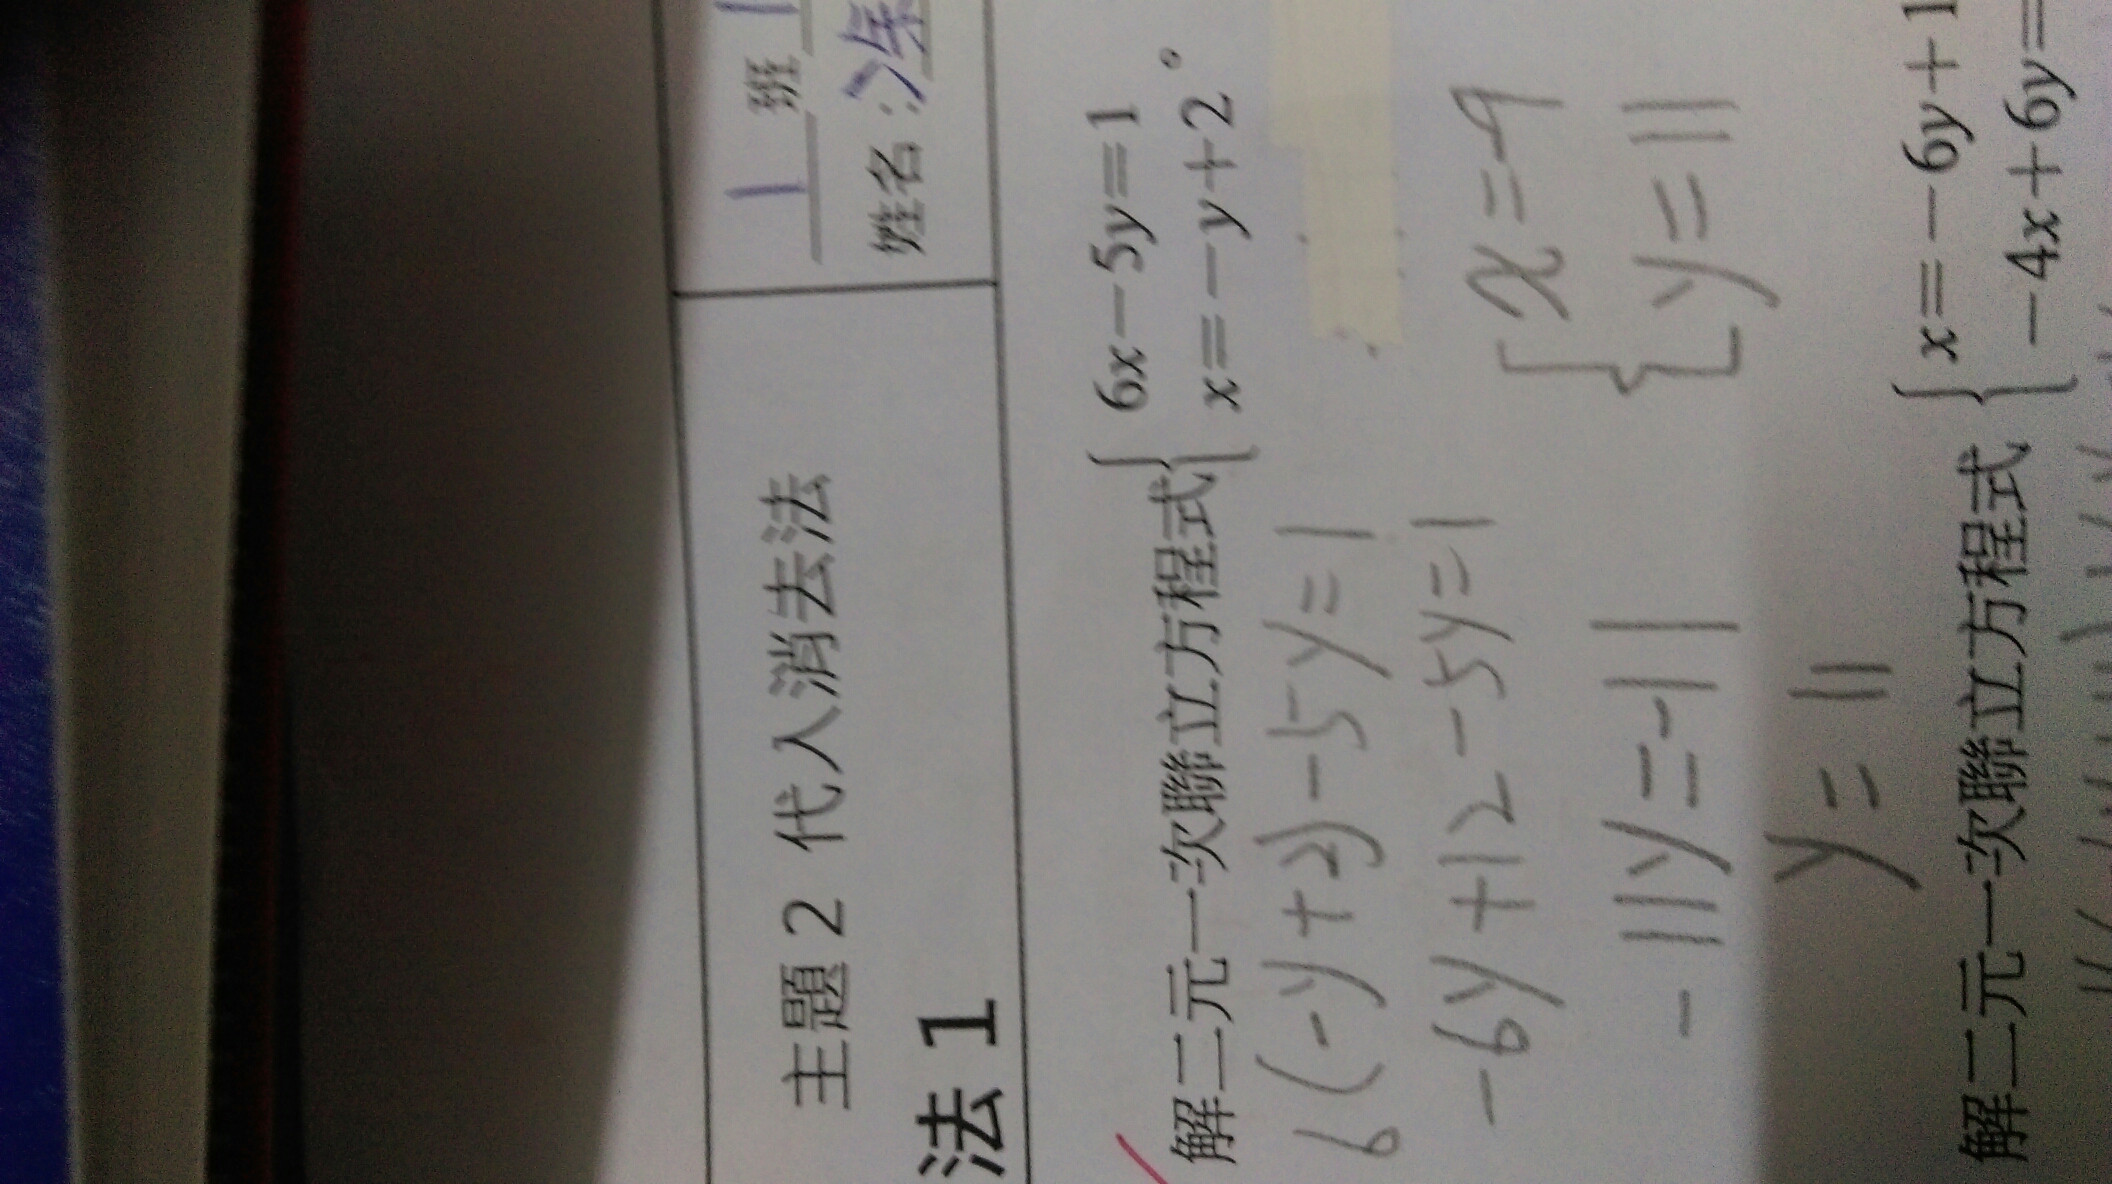 主題 2 代入消去法
1 班 1
姓名：涂
法 1
解二元一次聯立方程式{ 6x－5y＝1
x＝－y＋2 。
6(-y+2)-5y=1
-6y+12-5y=1
-11y=-11
y=11
{ x=-9
y=11
解二元一次聯立方程式{ x＝－6y＋1
－4x＋6y＝